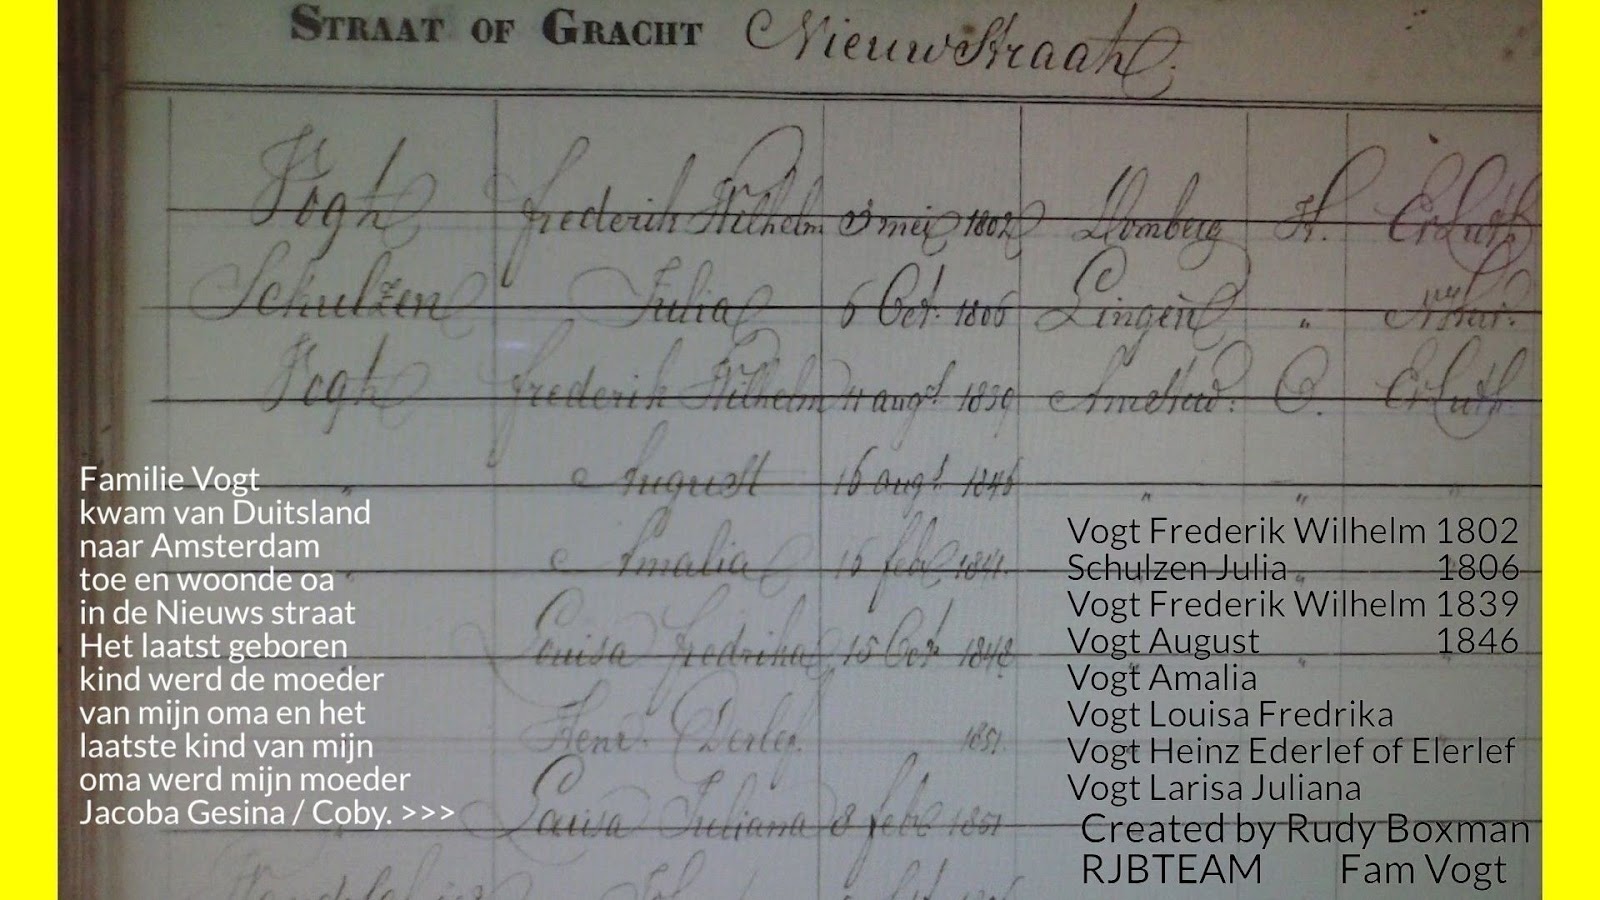 STRAAT OF GRACHT Nieuwstraat.
Vogt Frederik Wilhelm 3 mei 1802 Domberg H. Ev Luth
Schulzen Julia 6 Oct. 1806 Lingen "
Vogt Frederik Wilhelm 11 augt. 1839 Amsterd. O. Ev Luth.
" August 16 augt. 1846 " " "
" Amalia 15 feb. 1841. "
Louisa Fredrika 15 Oct. 1848 " "
Henr. 1851.
Louisa Juliana 8 feb. 1851
Familie Vogt
kwam van Duitsland
naar Amsterdam
toe en woonde oa
in de Nieuws straat
Het laatst geboren
kind werd de moeder
van mijn oma en het
laatste kind van mijn
oma werd mijn moeder
Jacoba Gesina / Coby. >>>
Vogt Frederik Wilhelm 1802
Schulzen Julia 1806
Vogt Frederik Wilhelm 1839
Vogt August 1846
Vogt Amalia
Vogt Louisa Fredrika
Vogt Heinz Ederlef of Elerlef
Vogt Larisa Juliana
Created by Rudy Boxman
RJBTEAM Fam Vogt